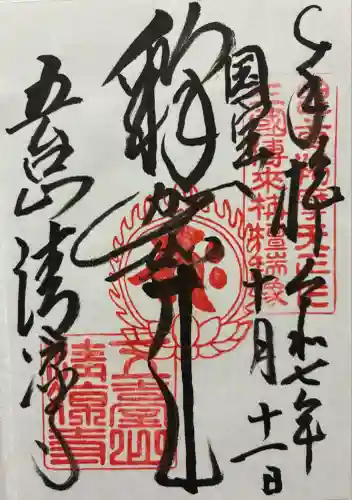 奉拝 令和七年
十月十一日
国宝
三國傳来栴檀瑞像
釋迦
五台山 清凉寺
五臺山
清凉寺